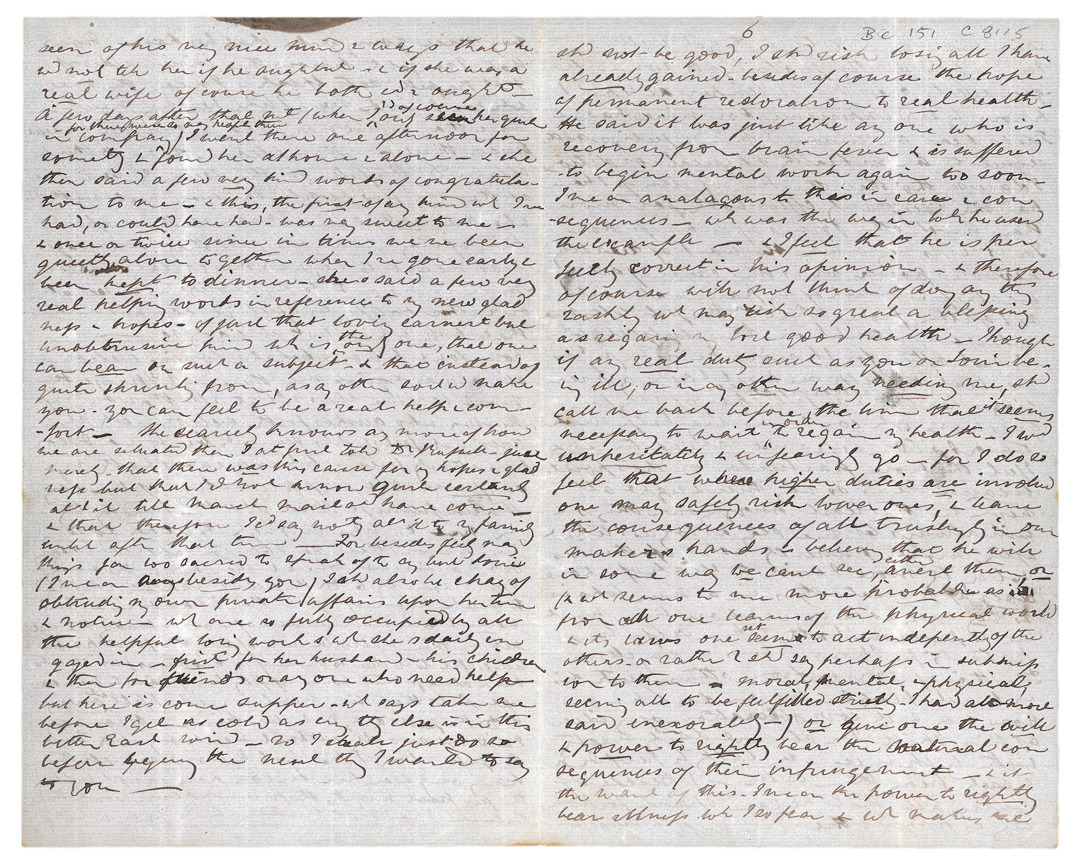 seen of his very nice mind & ways that he
wd not tell her if he ought not & if she was a
real wife of course he both cd & ought —
A few days after that not (when I only seen her quite
of course
in company for there were so very few
) I went there one afternoon for
something & found her at home & alone — & she
then said a few very kind words of congratula-
tion to me — & this, the first of any kind wh I've
had, or could have had — was very sweet to me —
& once or twice since in times we've been
quietly alone together when I've gone early &
been kept to dinner — she said a few very
real helping words in reference to my new glad
ness & hopes — of just that loving earnest but
unobtrusive kind wh is the only one, that one
can bear on such a subject — & that instead of
quite shrinking from, as any other sort wd make
you — you can feel to be a real help & com-
-fort — She scarcely knows any more of how
we are situated than I at first told Dr — just
merely that there was this cause for my hopes & glad
ness but that I cd not know quite certainly
abt it till March mails have come —
& that therefore I cd say nothing abt it to my family
until after that time — For besides feeling many
things far too sacred to speak of to any but some
(I mean any besides you) I shd also be chary of
obtruding my own private affairs upon her time
& notice — wh are so fully occupied by all
the helpful loving work wh she's daily en
gaged in — first for her husband — his children
& then for friends or any one who need help —
but here is come supper — wh says take me
before I get as cold as every thing else is in this
bitter East wind — so I shall just do so
before beginning the next thing I wanted to say
to you —
6
Bc 151 C 8115
shd not be good, I shd risk losing all I have
already gained — besides of course the hope
of permanent restoration to real health —
He said it was just like any one who is
recovering from brain fever & is suffered
to begin mental work again too soon —
I mean analagous to this in cause & con
-sequences — wh was the way in wh he used
the example — & I feel that he is per
fectly correct in his opinion — & therefore
of course will not think of doing any thing
rashly wh may risk so great a blessing
as regaining my lost good health — Though
if any real duty such as you or Louie be-
ing ill, or in any other way needing me, shd
call me back before the time that it seems
necessary to wait in order to regain my health — I wd
unhesitatingly & unfearingly go — for I do so
feel that where higher duties are involved
one may safely risk lower ones, & leave
the consequences of all trustingly in our
maker's hands — believing that he will
in some way we can't see, either avert them, or
(& wh seems to me more probable as
from all one learns of the physical world
& its laws one set seems to act independently of the
others — or rather I shd say perhaps in submiss
ion to them — moral, mental, & physical,
seeming all to be fulfilled strictly — I had almost
said inexorably) or give one the will
& power to rightly bear the natural con
sequences of their infringement — & it
the want of this — I mean the power to rightly
bear illness wh I so fear & wh makes me